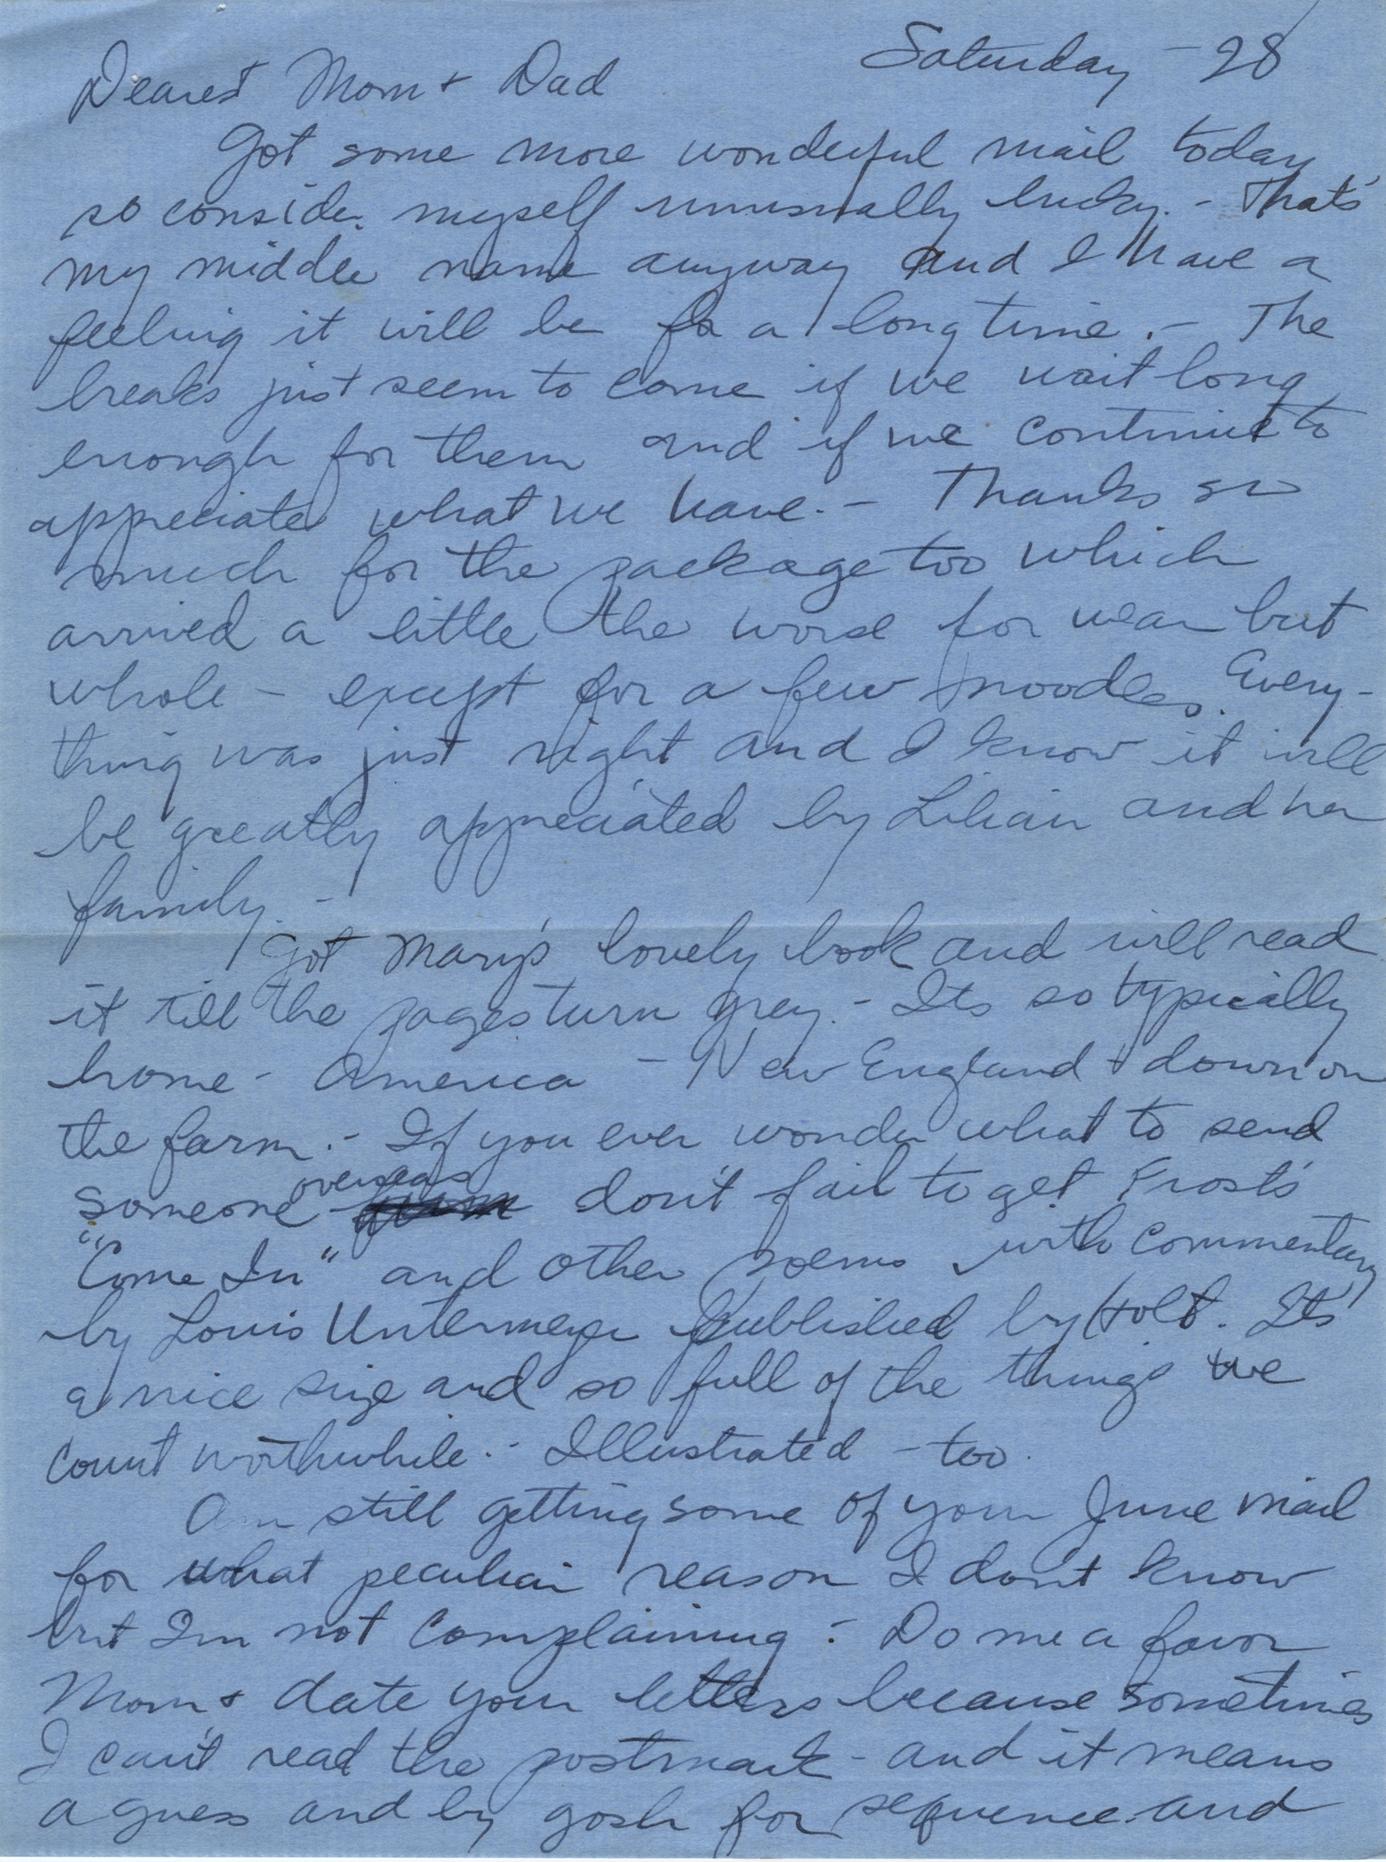 Saturday - 28
Dearest Mom + Dad
Got some more wonderful mail today
so consider myself unusually lucky. - That's
my middle name anyway and I have a
feeling it will be for a long time. - The
breaks just seem to come if we wait long
enough for them and if we continue to
appreciate what we have. - Thanks so
much for the package too which
arrived a little the worse for wear but
whole - except for a few noodles. Every-
thing was just right and I know it will
be greatly appreciated by Lilian and her
family. -
Got Mary's lovely book and will read
it till the pages turn grey. - Its so typically
home - America - New England + down on
the farm. - If you ever wonder what to send
someone overseas don't fail to get Frost's
"Come In" and other poems with commentary
by Louis Untermeyer published by Holt. Its
a nice size and so full of the things we
count worthwhile. - Illustrated - too.
Am still getting some of your June mail
for what peculiar reason I don't know
but I'm not complaining - Do me a favor
Mom + date your letters because sometimes
I can't read the postmark - and it means
a guess and by gosh for sequence and